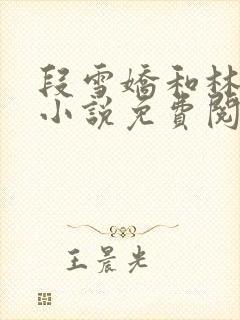 段雪嬌和林
小說免費閱
王晨光